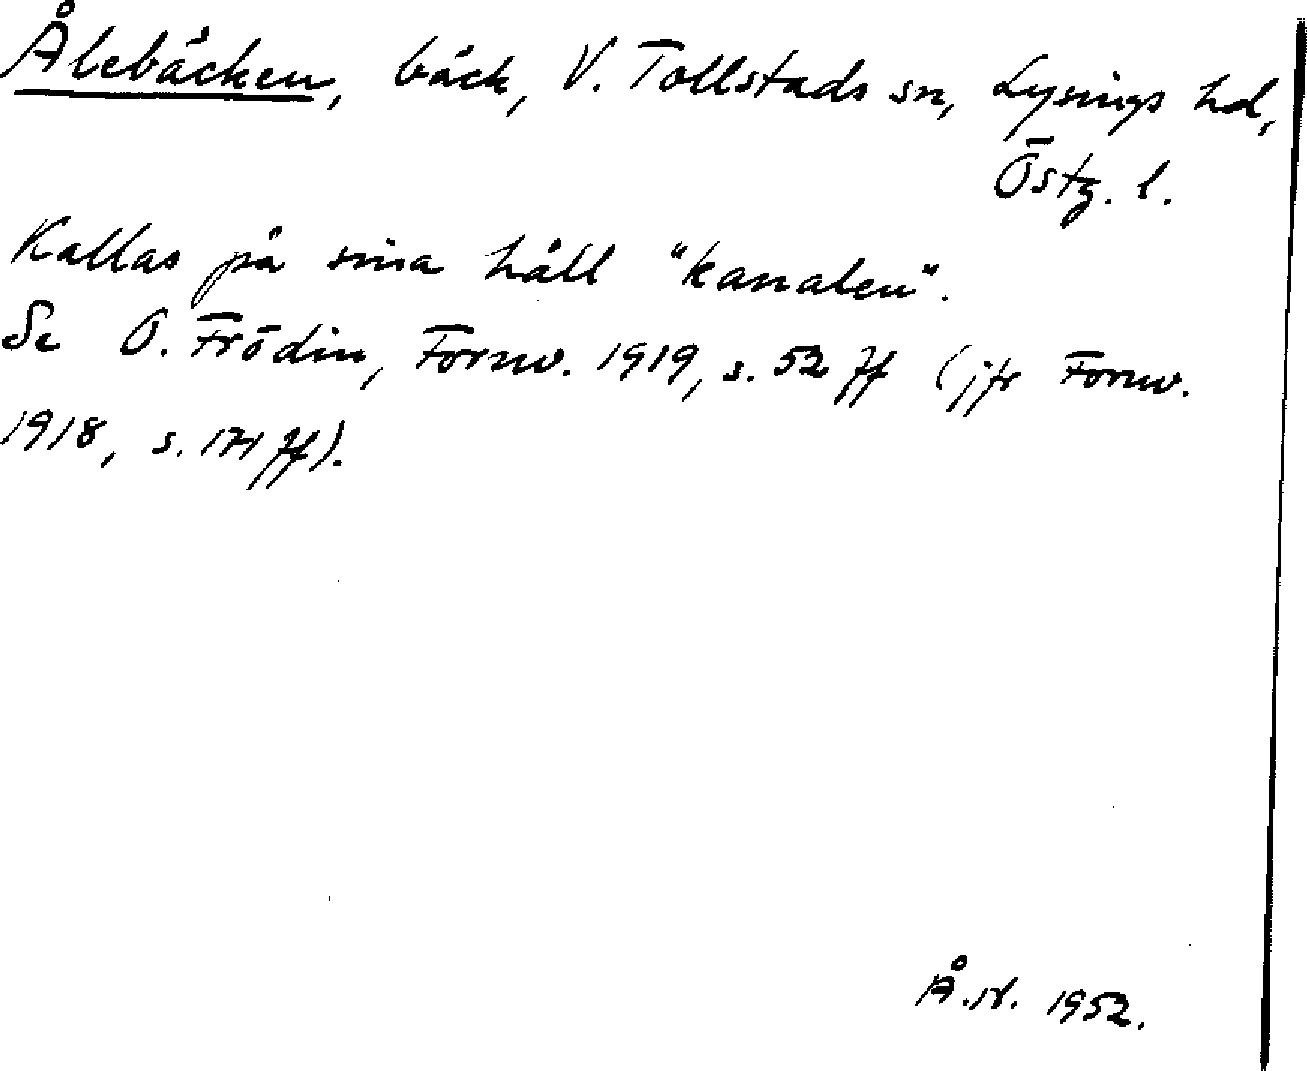 Ålebäcken, bäck, V. Tollstads sn, Lysings hd,
Östg. l.
Kallas på sina håll "kanalen".
Se O. Frödin, Fornv. 1919, s. 52 ff (jfr Fornv.
1918, s. 171 ff).
Å.N. 1952.